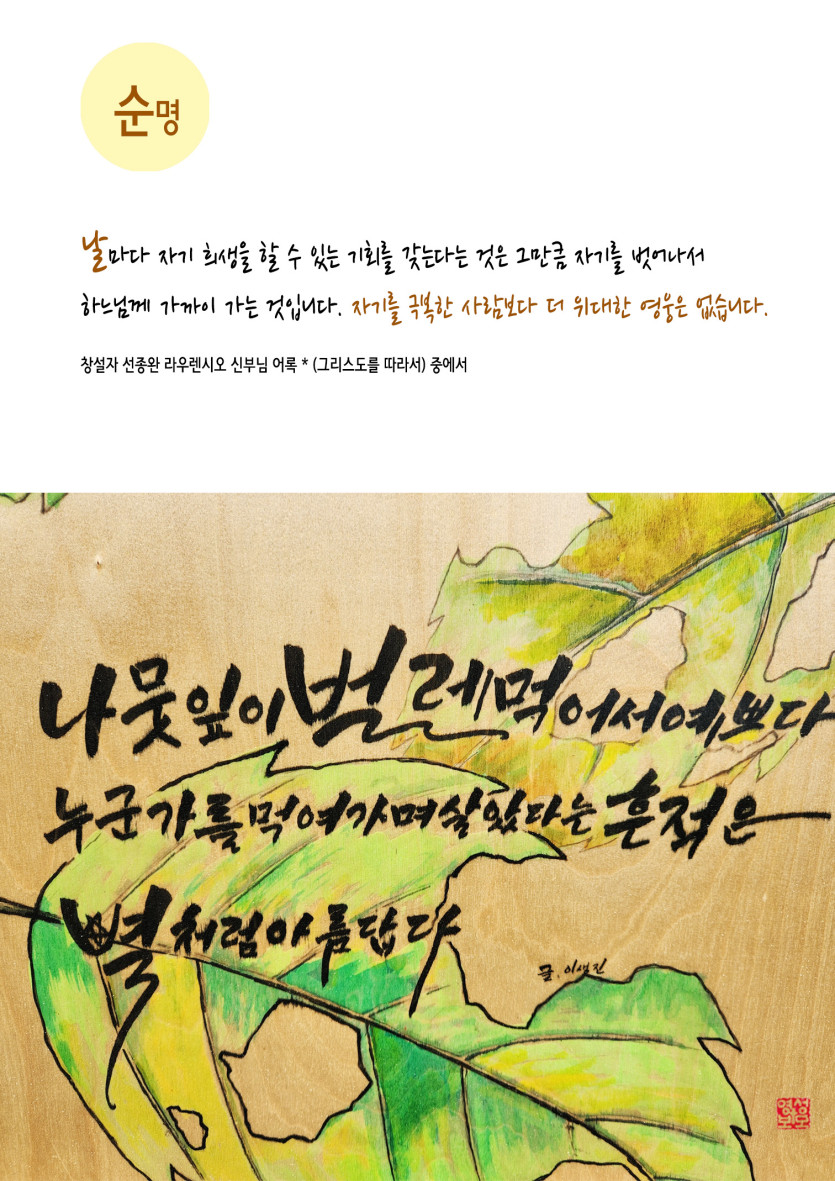 순명
날마다 자기 희생을 할 수 있는 기회를 갖는다는 것은 그만큼 자기를 벗어나서
하느님께 가까이 가는 것입니다. 자기를 극복한 사람보다 더 위대한 영웅은 없습니다.
창설자 선종완 라우렌시오 신부님 어록 * (그리스도를 따라서) 중에서
나뭇잎이 벌레먹어서 예쁘다
누군가를 먹여가며 살았다는 흔적은
별처럼 아름답다
글. 이생진